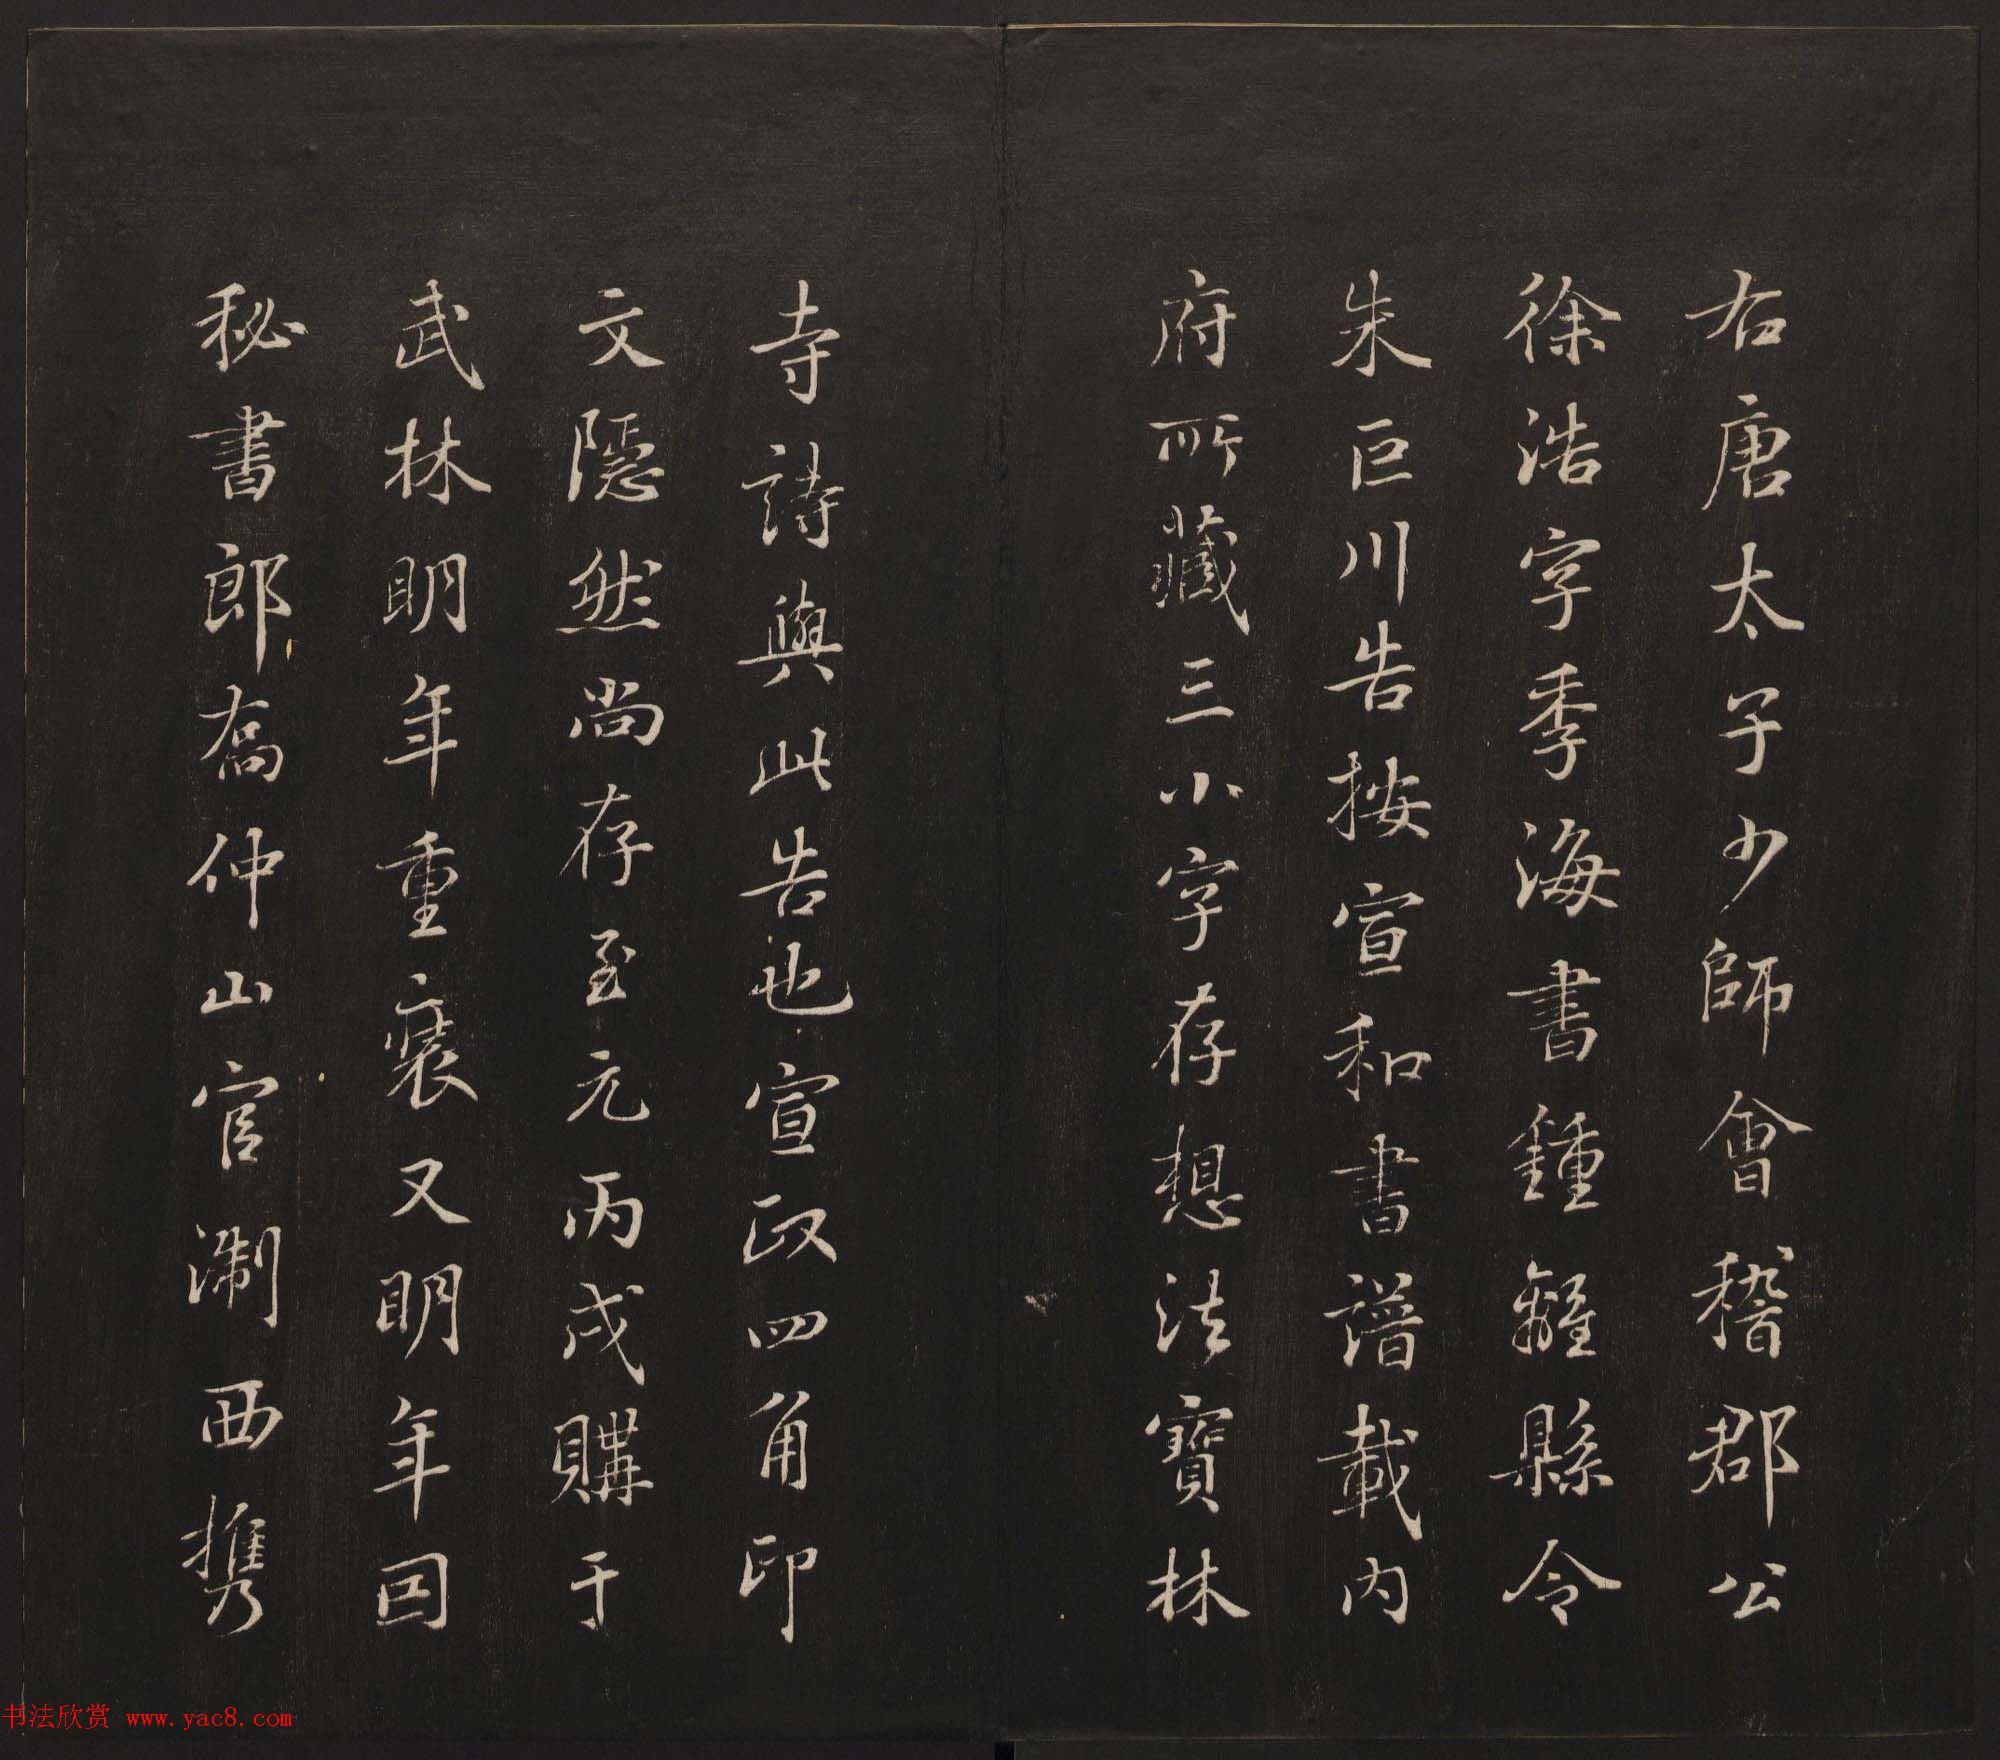 右唐太子少師會稽郡公
徐浩字季海書鍾離縣令
朱巨川告按宣和書譜載内
府所藏三小字存想法寶林
寺詩與此告也宣政四角印
文隱然尚存至元丙戌購于
武林明年重裝又明年因
秘書郎喬仲山官淛西携
书法欣赏 www.yac8.com